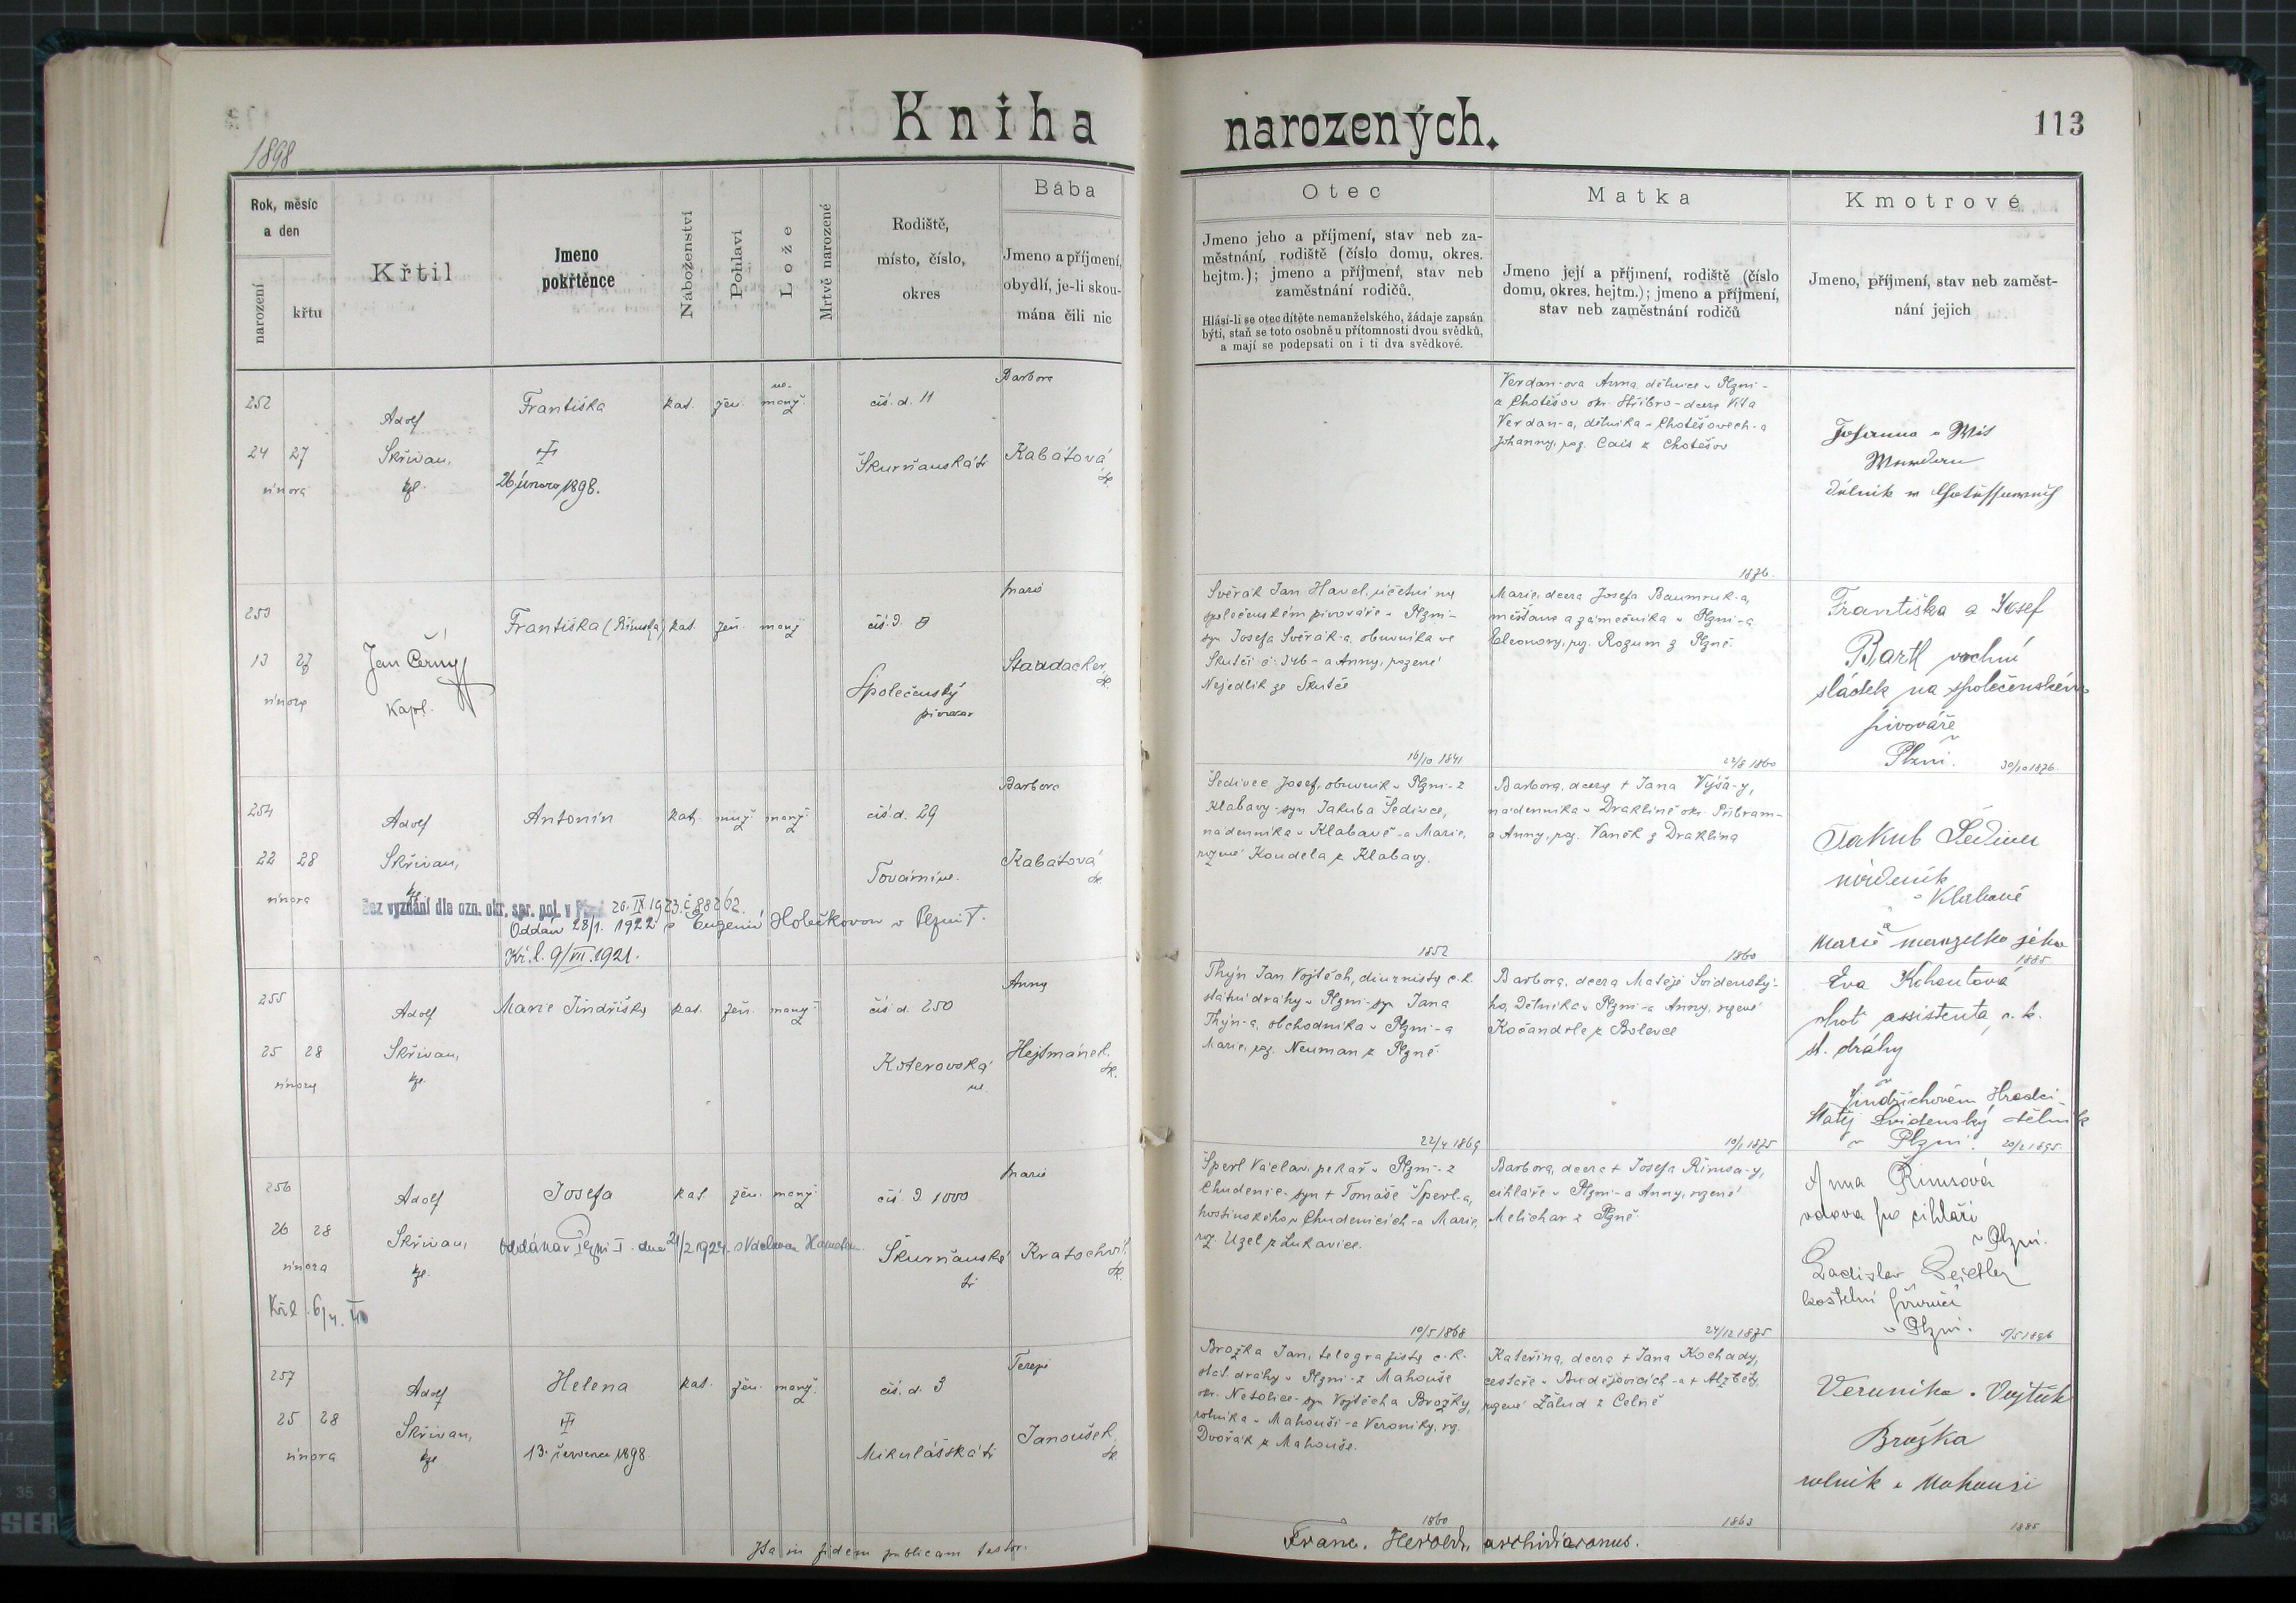 Kniha narozených.
113
1898
Rok, měsíc
a den
narození
křtu
Křtil
Jmeno
pokřtěnce
Náboženství
Pohlaví
Lože
Mrtvě narozené
Rodiště,
místo, číslo,
okres
Bába
Jmeno a příjmení,
obydlí, je-li skou-
mána čili nic
Otec
Jmeno jeho a příjmení, stav neb za-
městnání, rodiště (číslo domu, okres.
hejtm.); jmeno a příjmení, stav neb
zaměstnání rodičů.
Hlásí-li se otec dítěte nemanželského, žádaje zapsán
býti, staň se toto osobně u přítomnosti dvou svědků,
a mají se podepsati on i ti dva svědkové.
Matka
Jmeno její a příjmení, rodiště (číslo
domu, okres. hejtm.); jmeno a příjmení,
stav neb zaměstnání rodičů
Kmotrové
Jmeno, příjmení, stav neb zaměst-
nání jejich
252
24 27
února
Adolf
Skřivan,
kpl.
Františka
26 února 1898.
kat.
žen.
ne-
manž.
čís. d. 11
Škurňanská tř
Barbora
Kabátová
Verdan-ova Anna, dělnice v Plzni-
z Chotěšov okr. Stříbro - dcera Víta
Verdan-a, dělníka v Chotěšovech - a
Johanny, roz. Cais z Chotěšov
1876.
Johanna a
dělník v
253
13 27
února
Jan Černý
kapl.
Františka (Římská)
kat.
žen.
manž
čís. d. 8
Společenský
pivovar
Marie
Staudacher
Svěrák Jan Havel, účetní na
společenském pivováře v Plzni-
syn Josefa Svěrák-a, obuvníka ve
Skutči č. 346 - a Anny, rozené
Nejedlík ze Skutče
16/10 1841
Marie, dcera Josefa Baumruk-a,
měšťana a zámečníka v Plzni - a
Eleonory, roz. Rozum z Plzně.
22/8 1860
Františka a Josef
Bartl vrchní
sládek na společenském
pivováře
v
Plzni.
30/10 1876.
254
22 28
února
Adolf
Skřivan,
Antonín
kat.
muž.
manž.
čís. d. 29
Tovární ul.
Barbora
Kabátová
Bez vyznání dle ozn. okr. spr. pol. v Plzni 26. IX 1923. č. 88262.
Oddán 28/1. 1922 s Eugenií Holečkovou v Plzni
Kř. l. 9/VII. 1921.
Šedivec Josef, obuvník v Plzni - z
Klabavy - syn Jakuba Šedivce,
nádenníka v Klabavě - a Marie,
rozené Koudela z Klabavy.
1852
Barbora, dcera + Jana Výša-y,
nádenníka v Draklíně okr. Příbram -
a Anny, roz. Vaněk z Draklína
1860
Jakub Šedivec
nádeník
v Klabavě
a
Marie manželka jeho
1885
255
25 28
února
Adolf
Skřivan,
kpl.
Marie Jindřiška
kat.
žen.
manž.
čís. d. 250
Koterovská
ul.
Anna
Hejtmánek
Thýn Jan Vojtěch, diurnista c. k.
státní dráhy v Plzni - syn Jana
Thýn-a, obchodníka v Plzni - a
Marie, roz. Neuman z Plzně
22/4 1869
Barbora, dcera Matěje Svidenský-
ho, dělníka v Plzni - a Anny, rozené
Kočandrle z Bolevce
10/1 1875
Eva Kohoutová
choť assistenta c. k.
st. dráhy
v
Jindřichovém Hradci -
Matěj Svidenský dělník
v Plzni.
20/2 1895.
256
26 28
února
Kř. l. 6/4. 40
Adolf
Skřivan,
kpl.
Josefa
kat.
žen.
manž.
čís. d. 1000
Škurňanská
tř
Marie
Kratochvíl
Oddána v Plzni I. dne 21/2 1924 s Václavem
Šperl Václav, pekař v Plzni - z
Chudenic - syn + Tomáše Šperl-a,
hostinského v Chudenicích - a Marie,
roz. Uzel z Lukavice.
10/5 1868
Barbora, dcera + Josefa Římsa-y,
cihláře v Plzni - a Anny, rozené
Melichar z Plzně
24/12 1875
Anna Římsová
vdova po cihláři
v Plzni.
Ladislav
kostelní
v Plzni.
5/5 1896
257
25 28
února
Adolf
Skřivan,
kpl
Helena
13. července 1898.
kat.
žen.
manž.
čís. d. 3
Mikulášská tř
Terezie
Janoušek
Brožka Jan, telegrafista c. k.
stát. dráhy v Plzni - z Mahouše
okr. Netolice - syn Vojtěcha Brožky,
rolníka v Mahouši - a Veroniky, roz.
Dvořák z Mahouše.
1860
Kateřina, dcera + Jana Kochady,
cestáře v Budějovicích - a + Alžběty,
rozené Žálud z Celně
1863
Veronika a Vojtěch
Brožka
rolník z Mahouši
1885
Ita in fidem publicam testor.
Franc. Herold, archidiaconus.